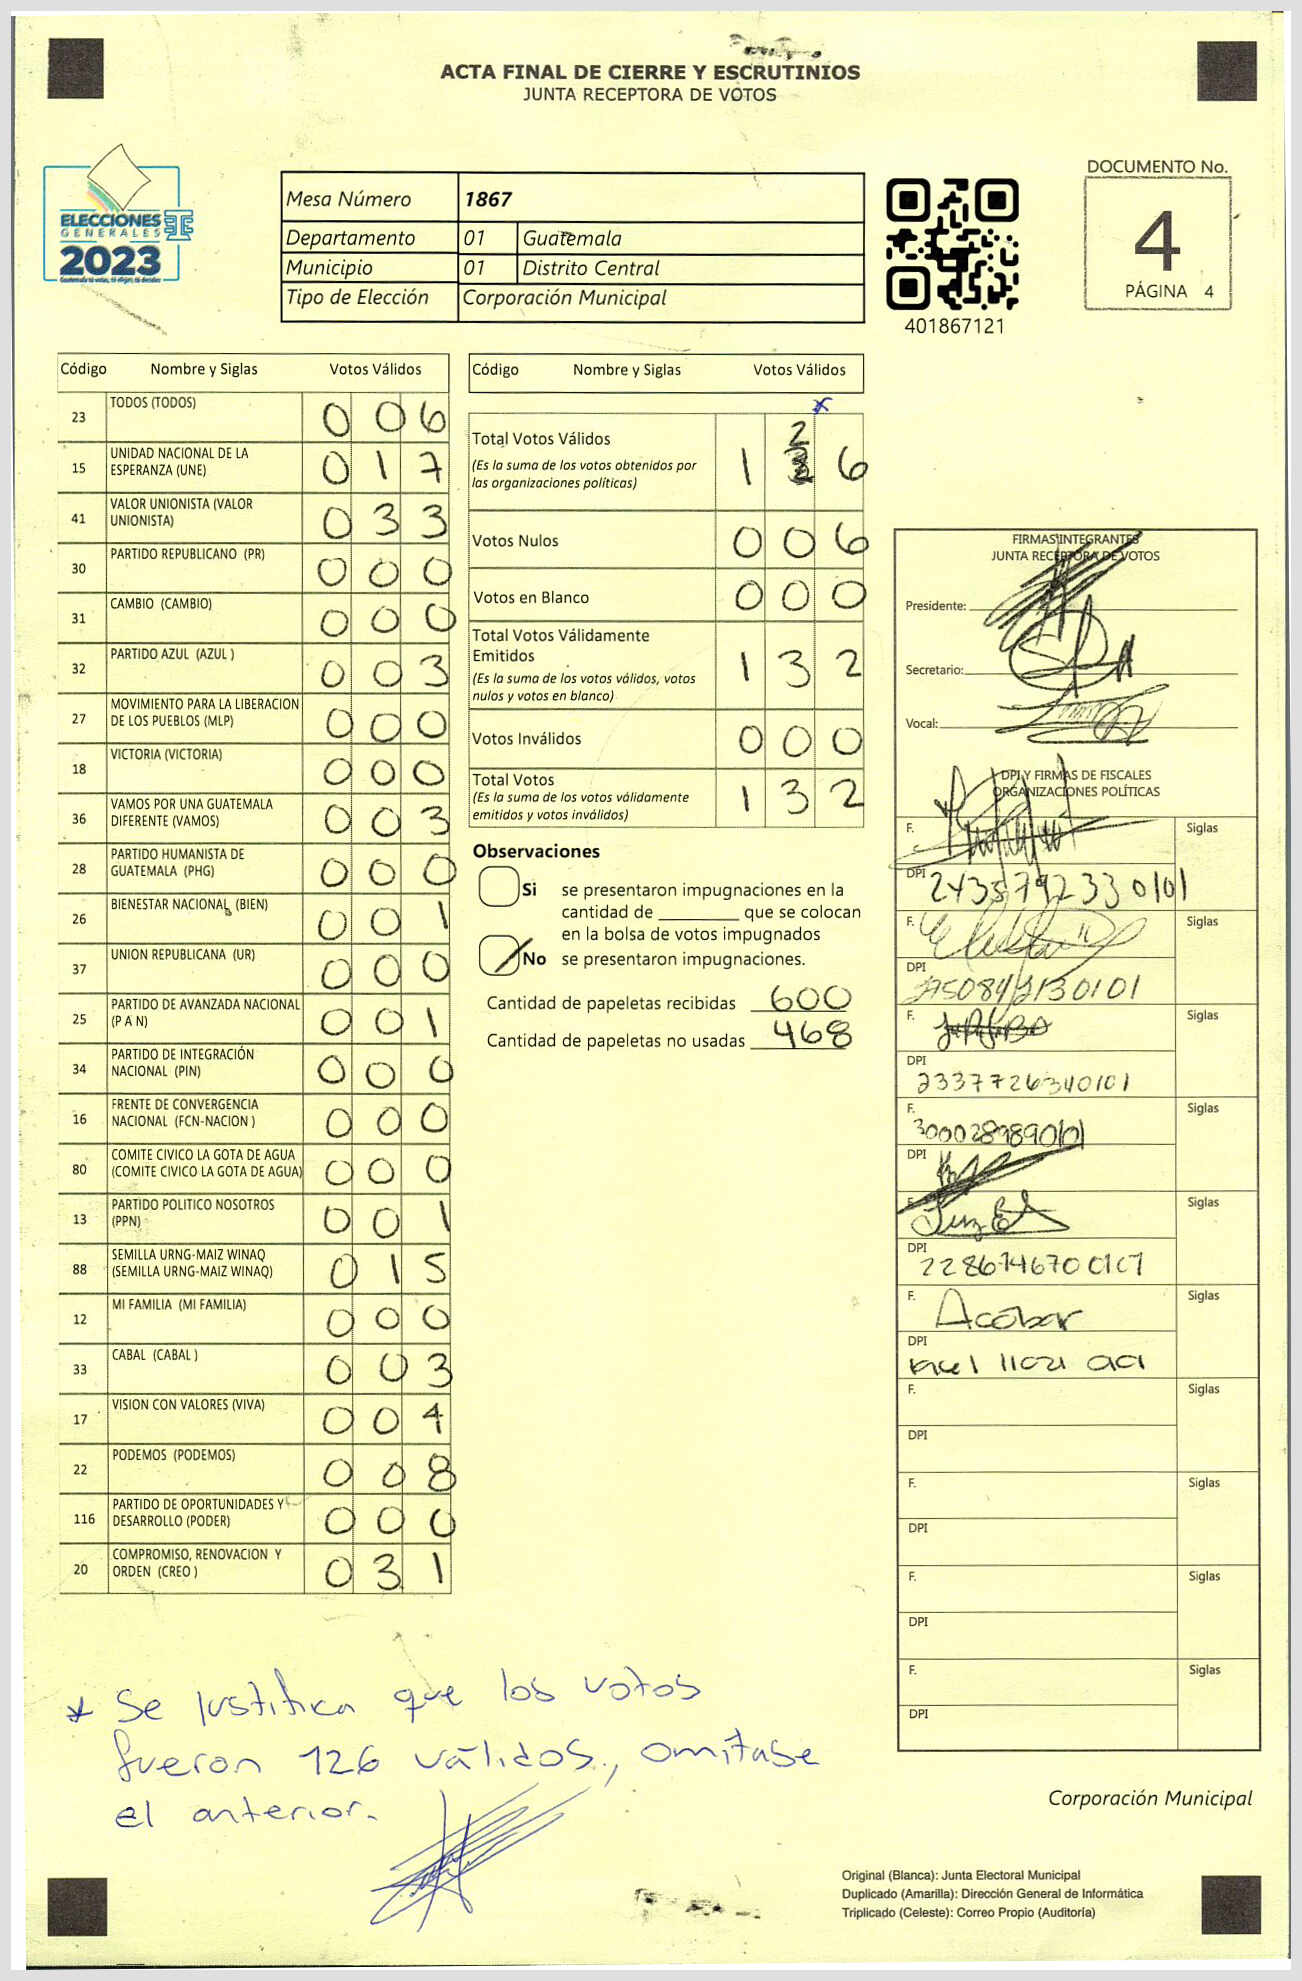 ACTA FINAL DE CIERRE Y ESCRUTINIOS
JUNTA RECEPTORA DE VOTOS
ELECCIONES
GENERALES
2023
Mesa Número 1867
Departamento 01 Guatemala
Municipio 01 Distrito Central
Tipo de Elección Corporación Municipal
401867121
DOCUMENTO No.
4
PÁGINA 4
Código Nombre y Siglas Votos Válidos
23 TODOS (TODOS) 0 0 6
15 UNIDAD NACIONAL DE LA
ESPERANZA (UNE) 0 1 7
41 VALOR UNIONISTA (VALOR
UNIONISTA) 0 3 3
30 PARTIDO REPUBLICANO (PR) 0 0 0
31 CAMBIO (CAMBIO) 0 0 0
32 PARTIDO AZUL (AZUL ) 0 0 3
27 MOVIMIENTO PARA LA LIBERACION
DE LOS PUEBLOS (MLP) 0 0 0
18 VICTORIA (VICTORIA) 0 0 0
36 VAMOS POR UNA GUATEMALA
DIFERENTE (VAMOS) 0 0 3
28 PARTIDO HUMANISTA DE
GUATEMALA (PHG) 0 0 0
26 BIENESTAR NACIONAL (BIEN) 0 0 1
37 UNION REPUBLICANA (UR) 0 0 0
25 PARTIDO DE AVANZADA NACIONAL
(P A N) 0 0 1
34 PARTIDO DE INTEGRACIÓN
NACIONAL (PIN) 0 0 0
16 FRENTE DE CONVERGENCIA
NACIONAL (FCN-NACION ) 0 0 0
80 COMITE CIVICO LA GOTA DE AGUA
(COMITE CIVICO LA GOTA DE AGUA) 0 0 0
13 PARTIDO POLITICO NOSOTROS
(PPN) 0 0 1
88 SEMILLA URNG-MAIZ WINAQ
(SEMILLA URNG-MAIZ WINAQ) 0 1 5
12 MI FAMILIA (MI FAMILIA) 0 0 0
33 CABAL (CABAL ) 0 0 3
17 VISION CON VALORES (VIVA) 0 0 4
22 PODEMOS (PODEMOS) 0 0 8
116 PARTIDO DE OPORTUNIDADES Y
DESARROLLO (PODER) 0 0 0
20 COMPROMISO, RENOVACION Y
ORDEN (CREO ) 0 3 1
Código Nombre y Siglas Votos Válidos
*
Total Votos Válidos 1 2 6
(Es la suma de los votos obtenidos por
las organizaciones políticas)
Votos Nulos 0 0 6
Votos en Blanco 0 0 0
Total Votos Válidamente
Emitidos 1 3 2
(Es la suma de los votos válidos, votos
nulos y votos en blanco)
Votos Inválidos 0 0 0
Total Votos 1 3 2
(Es la suma de los votos válidamente
emitidos y votos inválidos)
Observaciones
Si se presentaron impugnaciones en la
cantidad de ________ que se colocan
en la bolsa de votos impugnados
No se presentaron impugnaciones.
Cantidad de papeletas recibidas 600
Cantidad de papeletas no usadas 468
FIRMAS INTEGRANTES
JUNTA RECEPTORA DE VOTOS
Presidente:
Secretario:
Vocal:
DPI Y FIRMAS DE FISCALES
ORGANIZACIONES POLÍTICAS
F. Siglas
DPI 2435792330101
F. Siglas
DPI
F. Siglas
DPI 2337726340101
F. Siglas
3000289890101
DPI
F. Siglas
DPI
F. Acobar Siglas
DPI
F. Siglas
DPI
F. Siglas
DPI
F. Siglas
DPI
F. Siglas
DPI
* Se justifica que los votos
fueron 126 válidos, omitase
el anterior.
Corporación Municipal
Original (Blanca): Junta Electoral Municipal
Duplicado (Amarilla): Dirección General de Informática
Triplicado (Celeste): Correo Propio (Auditoría)